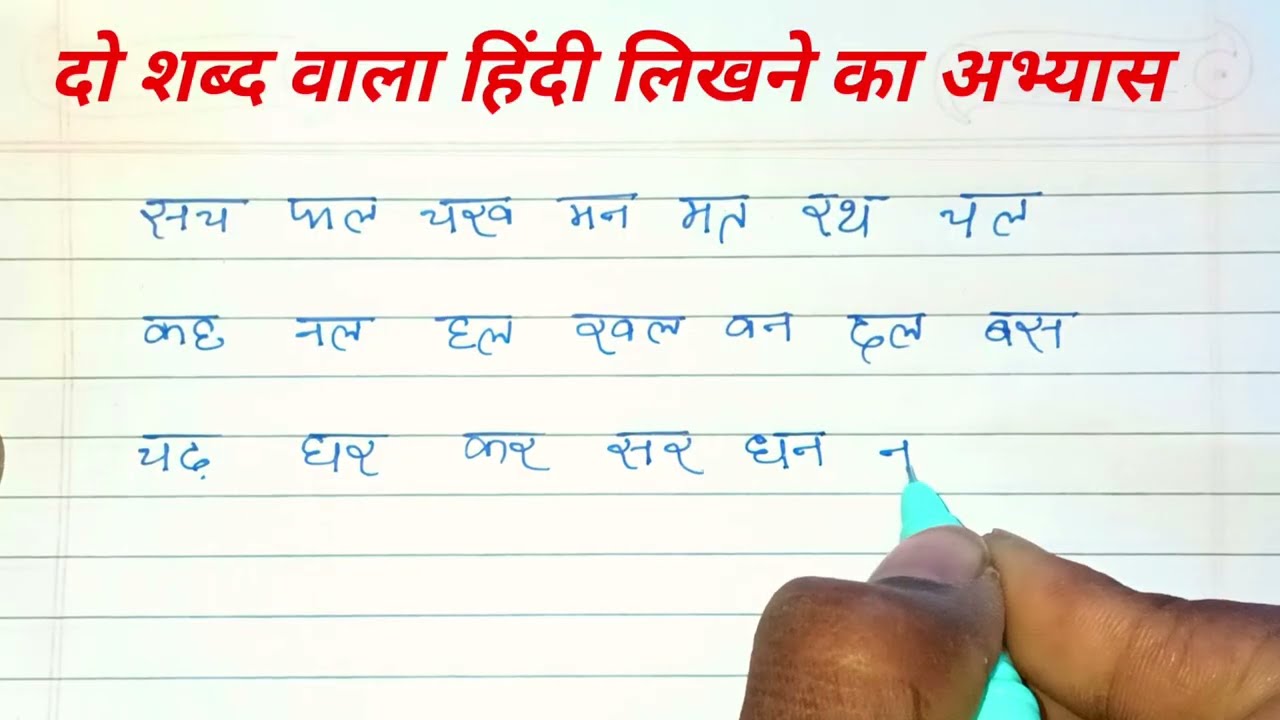 दो शब्द वाला हिंदी लिखने का अभ्यास
सच फल चख मन मत रथ चल
कह नल हल खल वन दल बस
चढ़ घर कर सर धन न